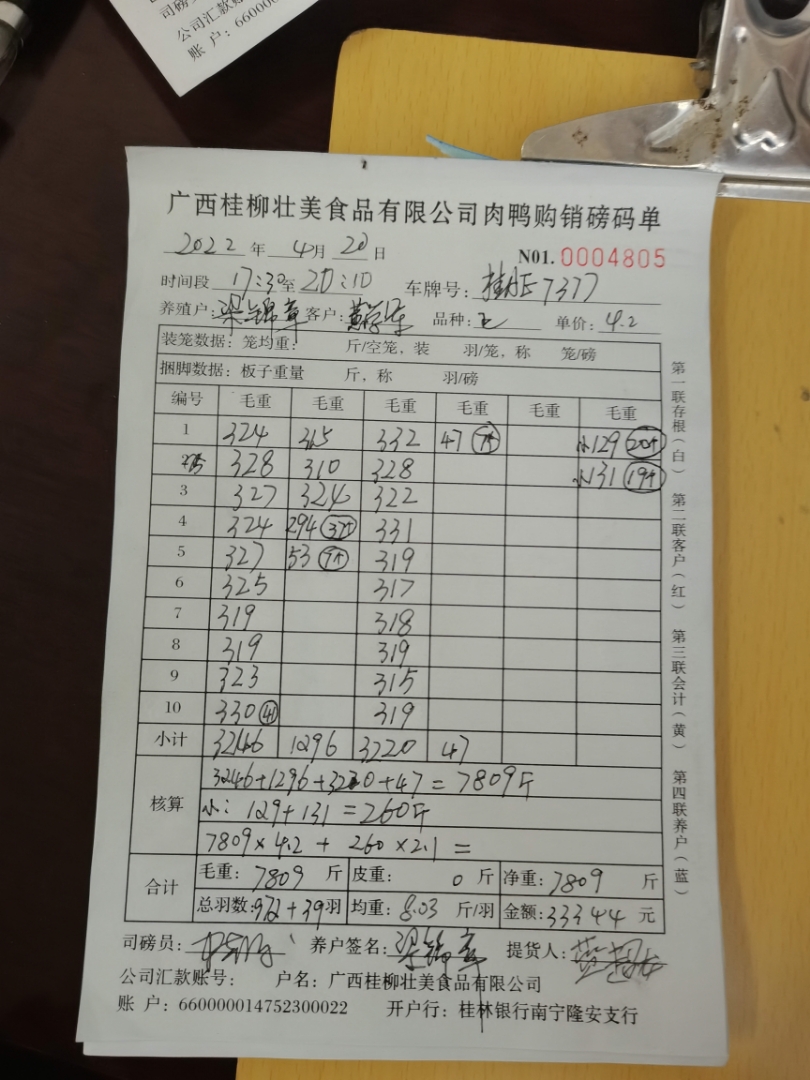 司磅
公司汇款账
账 户：66000
广西桂柳壮美食品有限公司肉鸭购销磅码单
2022 年 4月 20 日 N01. 0004805
时间段 17:30至20:10 车牌号： 7377
养殖户：梁锦章 客户： 品种： 单价：4.2
装笼数据：笼均重： 斤/空笼，装 羽/笼，称 笼/磅
捆脚数据：板子重量 斤，称 羽/磅
编号 毛重 毛重 毛重 毛重 毛重 毛重
1 324 315 332 47 7个 小129 20个
328 310 328 小131 19个
3 327 324 322
4 324 294 37个 331
5 327 53 7个 319
6 325 317
7 319 318
8 319 319
9 323 315
10 330 41 319
小计 3246 1296 3220 47
核算
3246+1296+3220+47=7809斤
小：129+131=260斤
7809×4.2+260×2.1=
合计
毛重：7809 斤 皮重： 0 斤 净重：7809 斤
总羽数：972+39羽 均重：8.03 斤/羽 金额：33344 元
司磅员： 养户签名：梁锦章 提货人：
公司汇款账号： 户名：广西桂柳壮美食品有限公司
账 户：660000014752300022 开户行：桂林银行南宁隆安支行
第一联存根（白） 第二联客户（红） 第三联会计（黄） 第四联养户（蓝）